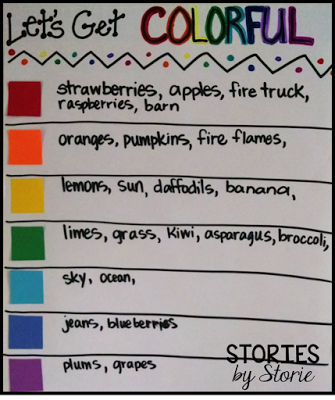 Let's Get COLORFUL
strawberries, apples, fire truck,
raspberries, barn
oranges, pumpkins, fire flames,
lemons, sun, daffodils, banana,
limes, grass, kiwi, asparagus, broccoli,
sky, ocean,
jeans, blueberries
plums, grapes
STORIES
by Storie